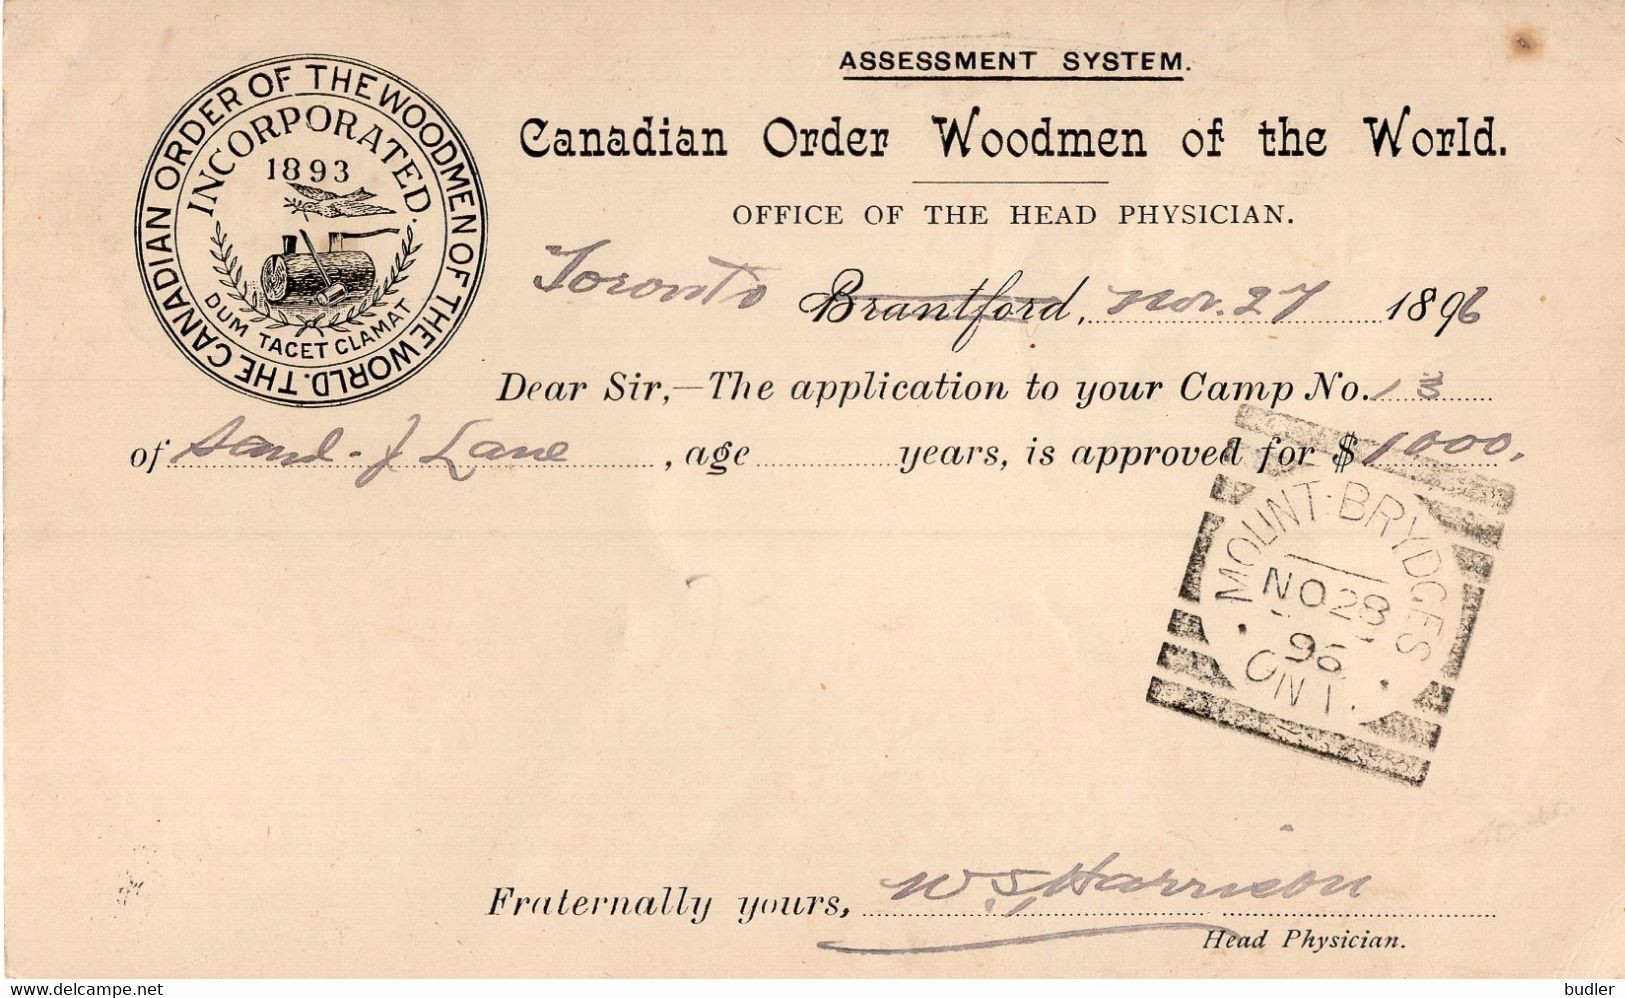 ASSESSMENT SYSTEM.
THE CANADIAN ORDER OF THE WOODMEN OF THE WORLD.
INCORPORATED.
1893
DUM TACET CLAMAT
Canadian Order Woodmen of the World.
OFFICE OF THE HEAD PHYSICIAN.
Toronto Brantford, Nov. 27 1896
Dear Sir,—The application to your Camp No. 13
of Saml. J Lane, age years, is approved for $1000.
MOUNT BRYDGES
NO 28
96
ONT.
Fraternally yours, W S Harrison
Head Physician.
delcampe.net
budler